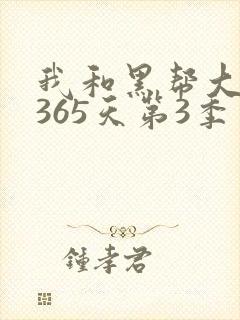 我和黑帮大
365天第3季
锺孝君